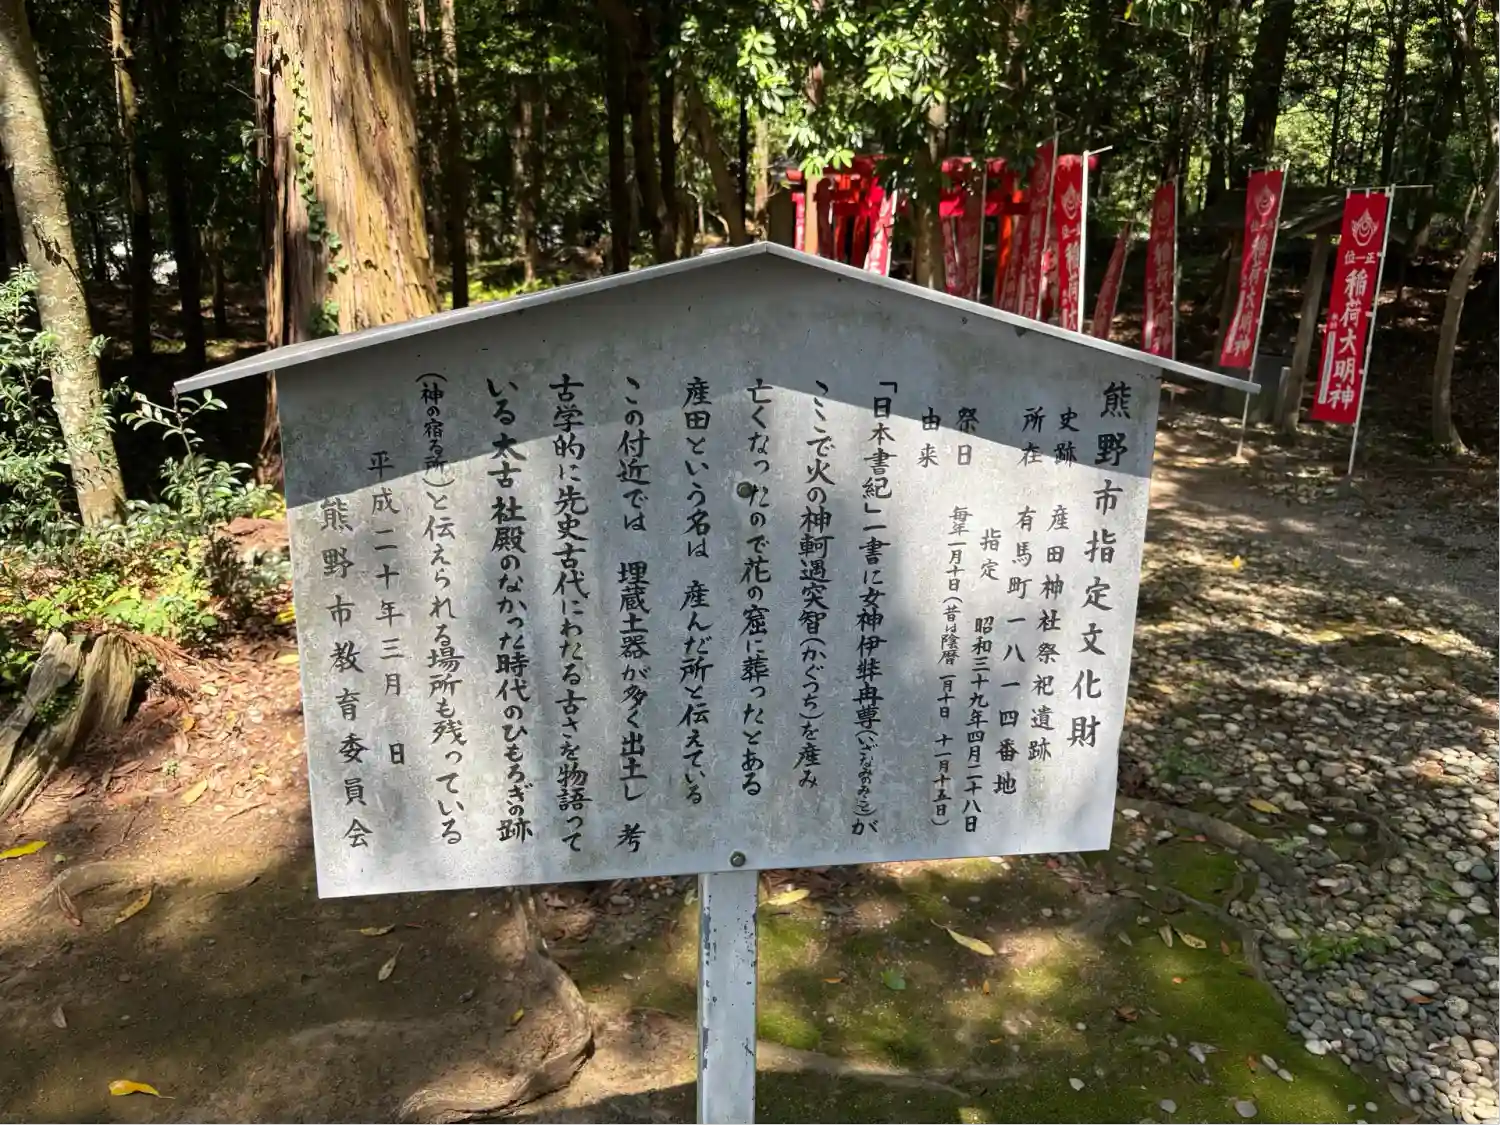 熊野市指定文化財
史跡 産田神社祭祀遺跡
所在 有馬町一八一四番地
指定 昭和三十九年四月二十八日
祭日 毎年一月十日(昔は陰暦 一月十日 十一月十五日)
由来
「日本書紀」一書に女神伊弉冉尊(いざなみのみこと)が
ここで火の神軻遇突智(かぐつち)を産み
亡くなったので花の窟に葬ったとある
産田という名は 産んだ所と伝えている
この付近では 埋蔵土器が多く出土し 考
古学的に先史古代にわたる古さを物語って
いる 太古社殿のなかった時代のひもろぎの跡
(神の宿る所)と伝えられる場所も残っている
平成二十年三月 日
熊野市教育委員会
正一位
稲荷大明神
正一位
稲荷大明神
正一位
稲荷大明神
正一位
稲荷大明